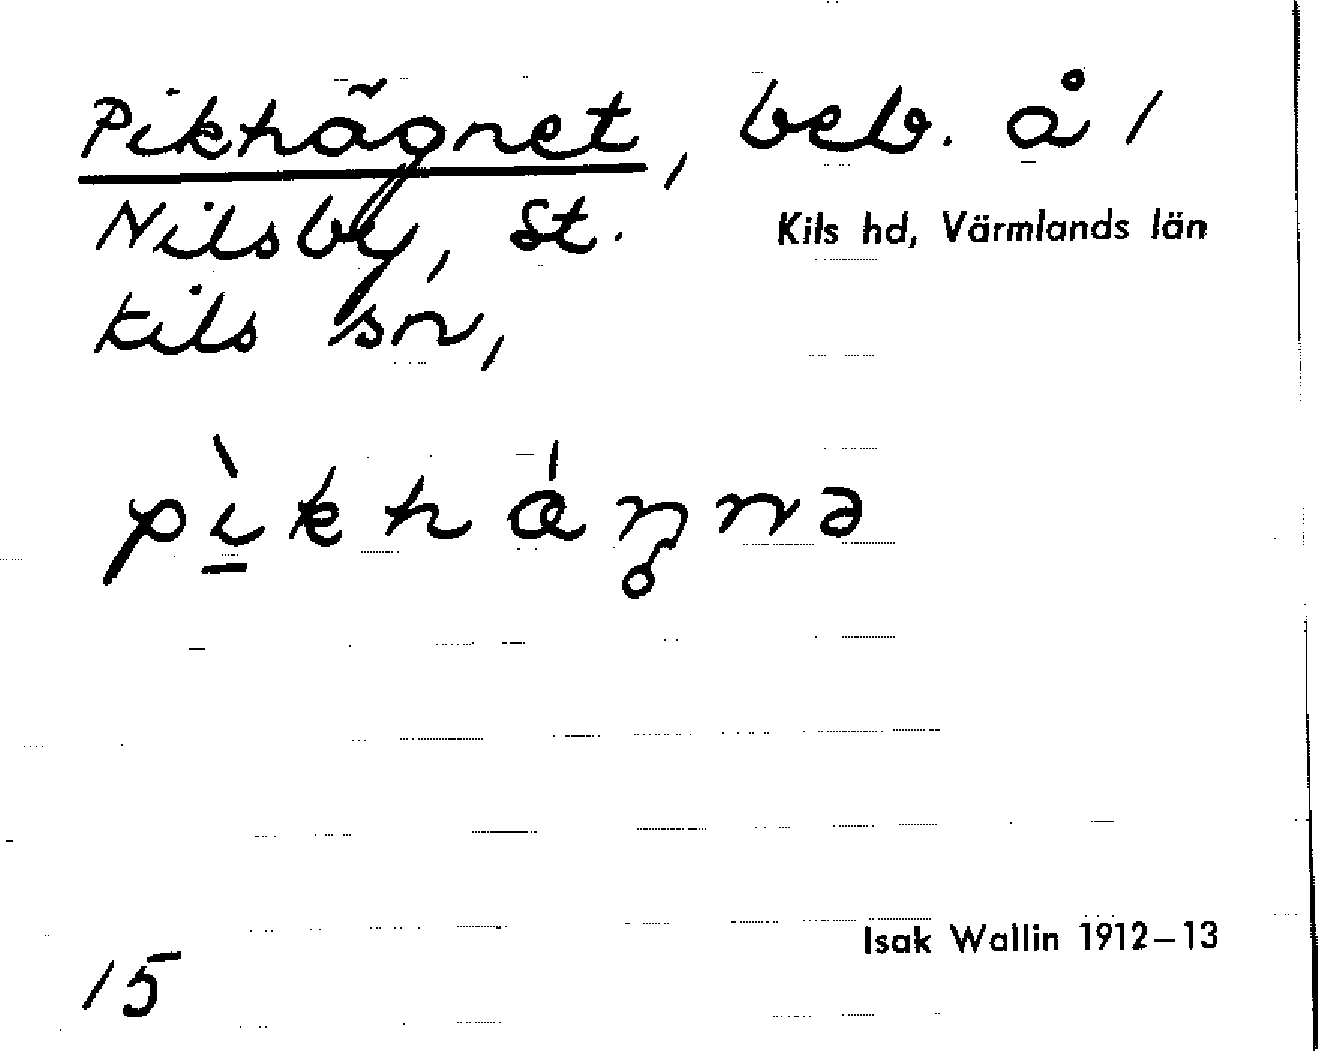 Pikhägnet, beb. å /
Nilsby, St. Kils hd, Värmlands län
Kils sn,
pìkháŋnə
15
Isak Wallin 1912–13